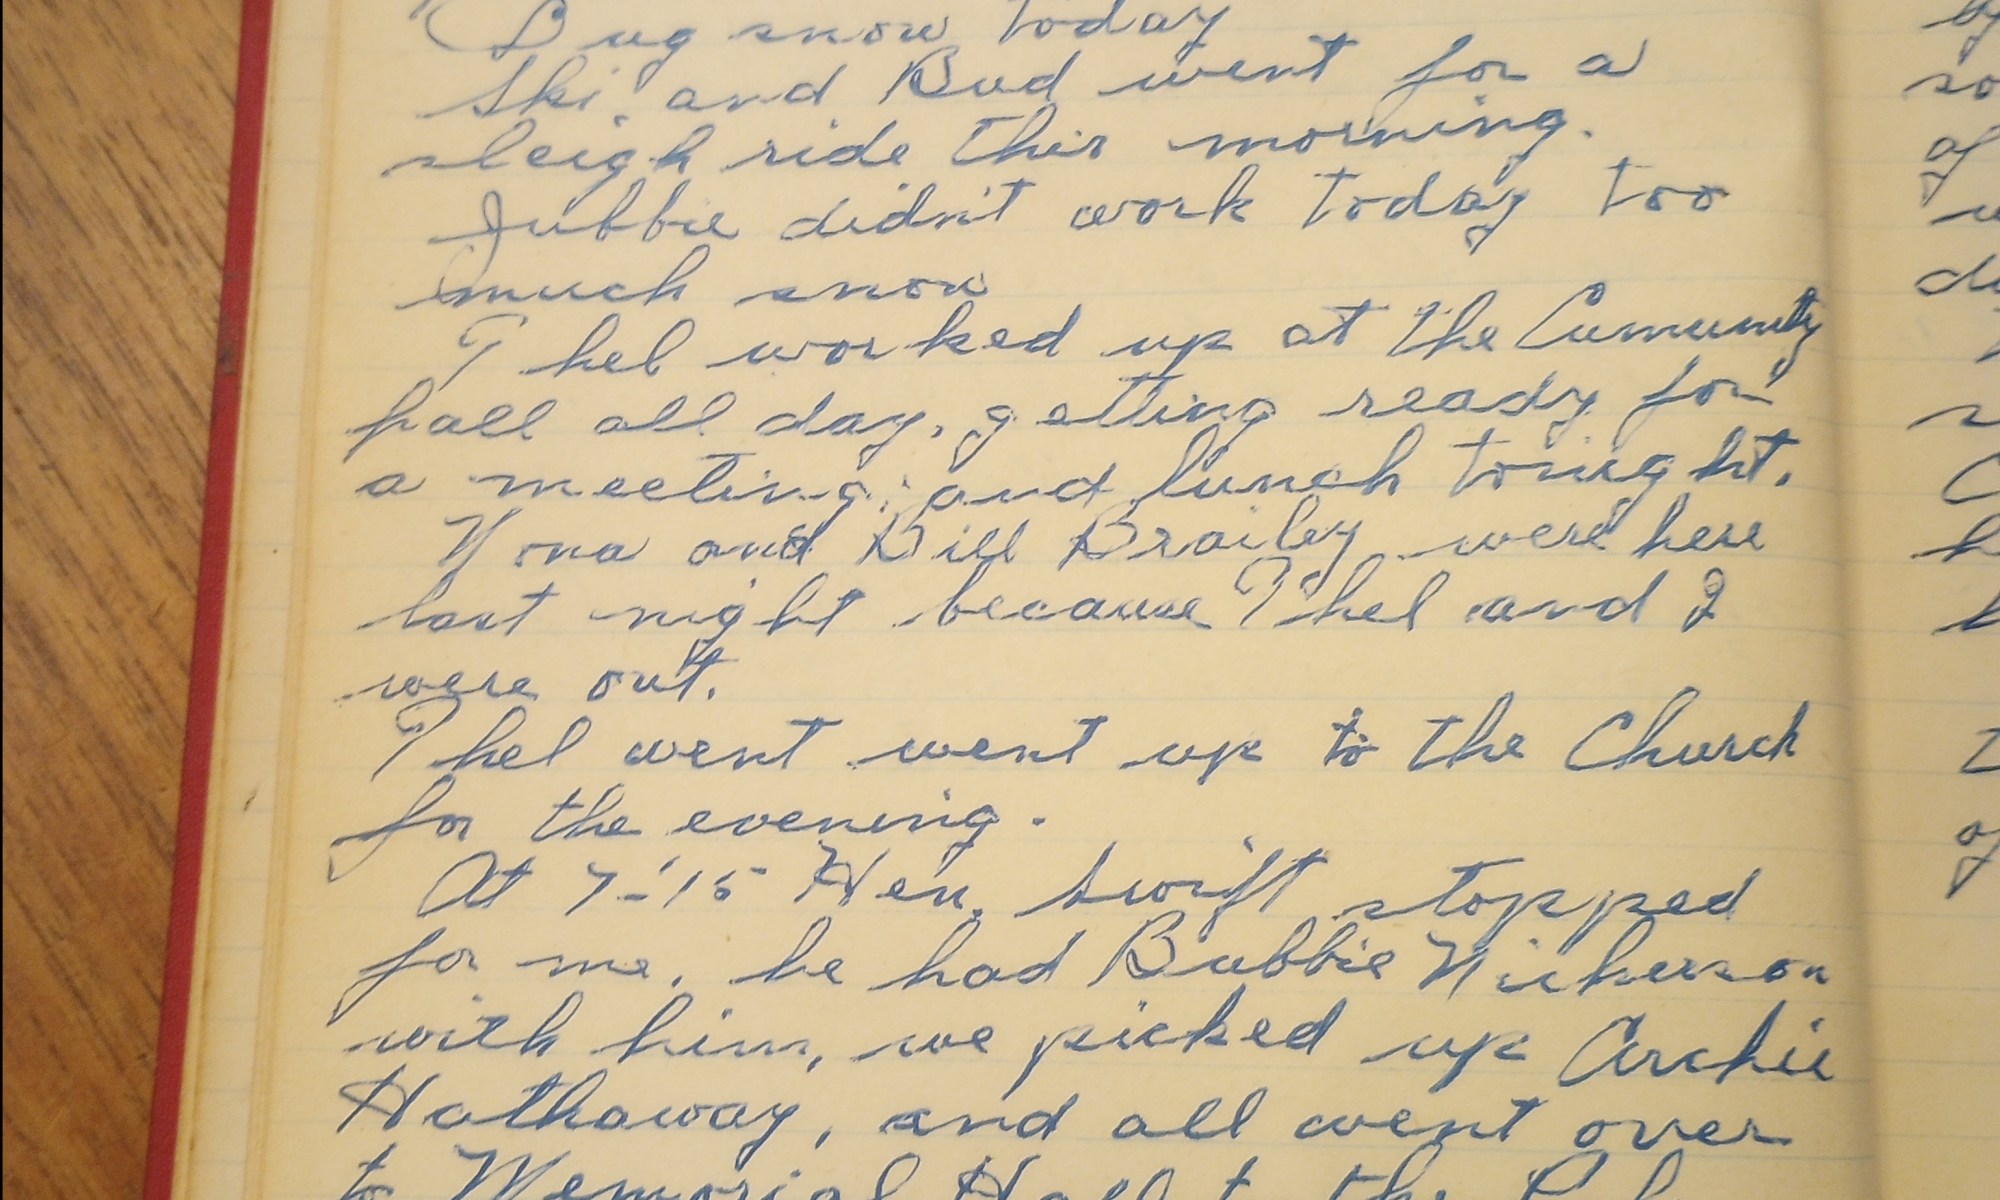 snow today
Ski, and Bud went for a
sleigh ride this morning.
Jubbie didn't work today too
much snow
Thel worked up at the Comunity
hall all day, getting ready for
a meeting, and lunch tonight.
Nona and Bill Brailey were here
last night because Thel and I
were out.
Thel went went up to the Church
for the evening.
At 7-15 Hen. Swift stopped
for me, he had Bubbie Nickerson
with him, we picked up Archie
Hathaway, and all went over
to Memorial Hall